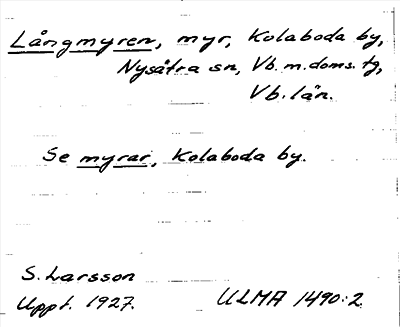 Långmyren, myr, Kolaboda by,
Nysätra sn, Vb. m. doms. tg,
Vb. län.
Se myrar, Kolaboda by.
S. Larsson
Uppt. 1927.
ULMA 1490:2